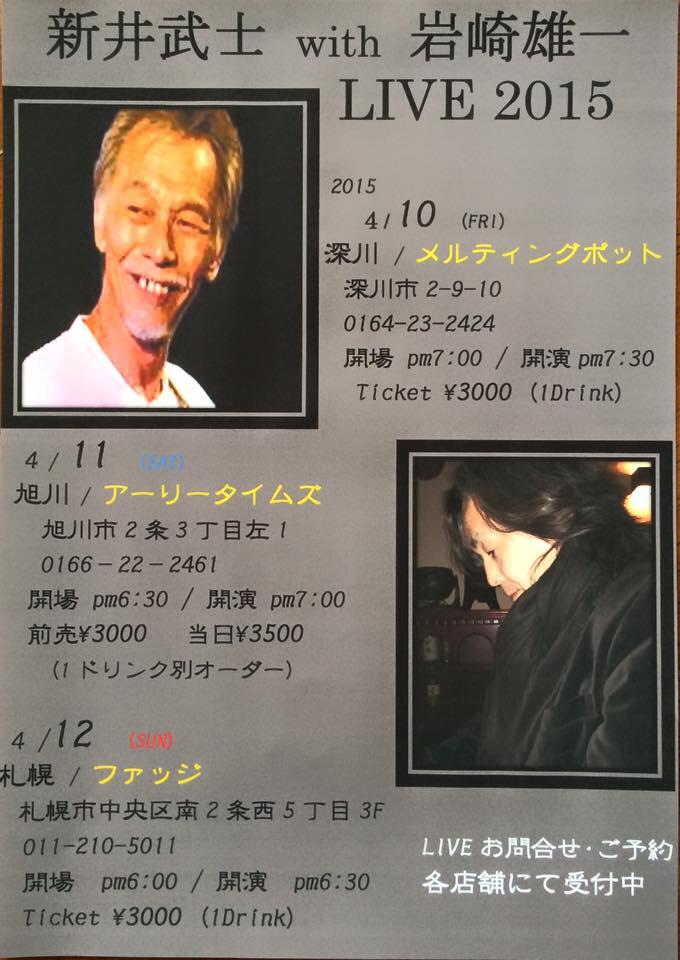 新井武士 with 岩崎雄一
LIVE 2015
2015
4/10 (FRI)
深川 / メルティングポット
深川市 2-9-10
0164-23-2424
開場 pm7:00 / 開演 pm7:30
Ticket ¥3000 (1Drink)
4/11 (SAT)
旭川 / アーリータイムズ
旭川市 2 条 3 丁目左 1
0166-22-2461
開場 pm6:30 / 開演 pm7:00
前売¥3000 当日¥3500
(1 ドリンク別オーダー)
4/12 (SUN)
札幌 / ファッジ
札幌市中央区南 2 条西 5 丁目 3F
011-210-5011
開場 pm6:00 / 開演 pm6:30
Ticket ¥3000 (1Drink)
LIVE お問合せ・ご予約
各店舗にて受付中